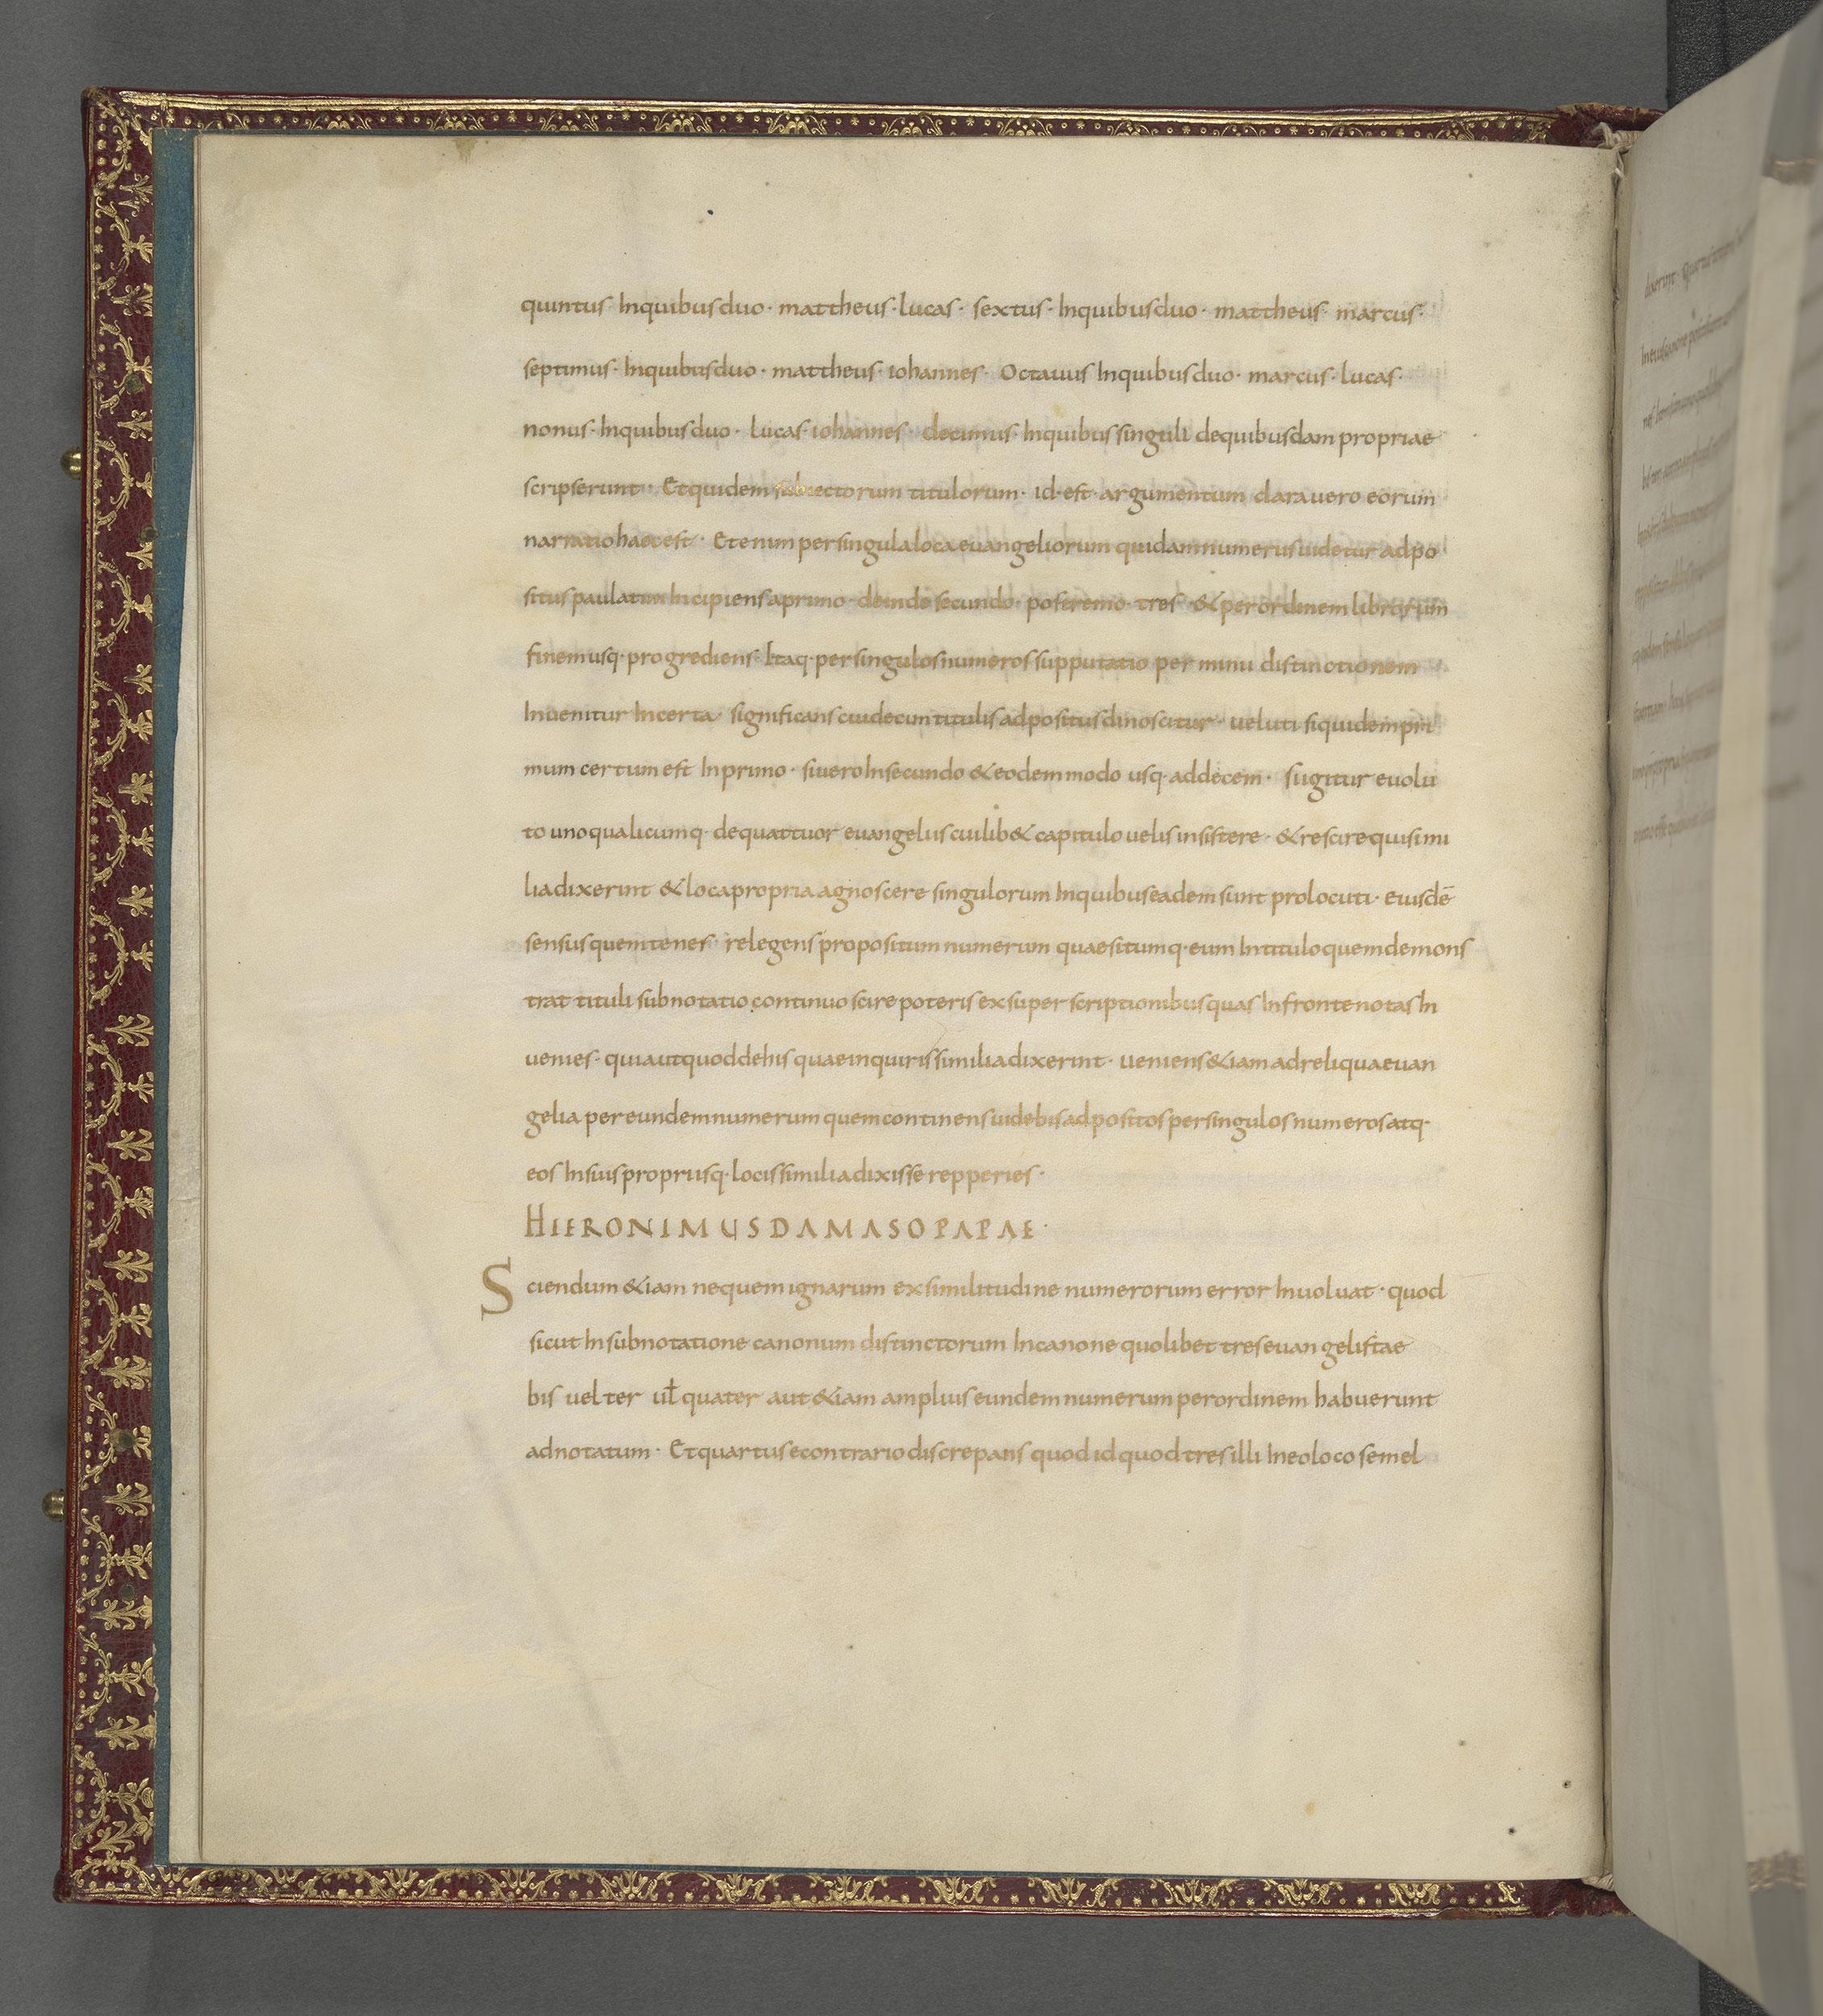 quintus· Inquibusduo· mattheus·lucas· sextus· Inquibusduo· mattheus· marcus·
septimus· Inquibusduo· mattheus· iohannes· Octauus Inquibusduo· marcus· lucas·
nonus· Inquibusduo· lucas· iohannes· decimus· Inquibus singuli dequibusdam propriae
scripserunt· Et quidem subiectorum titulorum· id· est· argumentum clara uero eorum
narratio haec est· Etenim per singula loca euangeliorum quidam numerus uidetur adpo
situs paulatim Incipiens a primo· deinde secundo· postremo· tres· & per ordinem librorum
finem usq· progrediens· Itaq· per singulos numeros supputatio per minu distinctionem
Inuenitur Incerta· significans cui decim titulis adpositus dinoscitur· ueluti siquidem pri
mum certum est In primo· si uero In secundo & eodem modo usq· ad decem· Si igitur euolu
to uno qualicumq· de quattuor euangeliis cuilib& capitulo uelis insistere· & rescire qui simi
lia dixerint & loca propria agnoscere singulorum In quibus eadem sunt prolocuti· eiusdē
sensus quem tenes· relegens propositum numerum quaesitumq· eum In titulo quem demons
trat tituli subnotatio continuo scire poteris ex superscriptionibus quas In fronte notas In
uenies· qui aut quod de his quae inquiris similia dixerint· ueniens &iam ad reliqua euan
gelia per eundem numerum quem continens uidebis adpositos per singulos numeros atq·
eos In suis propriisq· locis similia dixisse repperies·
HIERONIMUS DAMASO PAPAE·
Sciendum &iam ne quem ignarum ex similitudine numerorum error Inuoluat· quod
sicut In subnotatione canonum distinctorum In canone quolibet tres euangelistae
bis uel ter uł quater aut &iam amplius eundem numerum per ordinem habuerunt
adnotatum· Et quartus econtrario discrepans quod id quod tres illi In eo loco semel